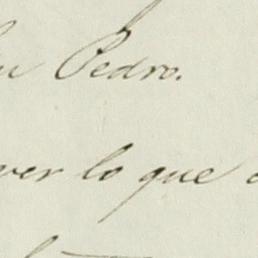 Pedro.
ver lo que